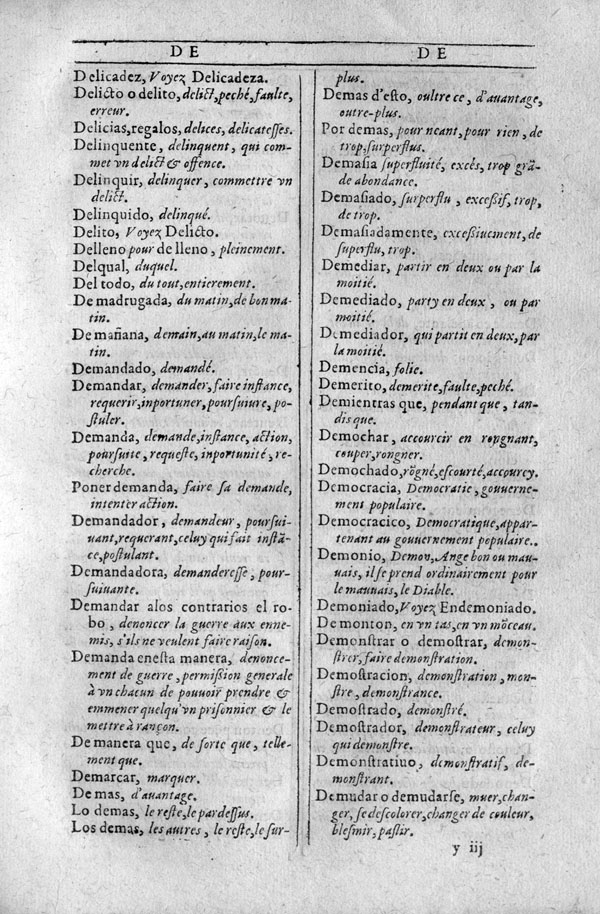 DE
Delicadez, Voyez Delicadeza.
Delicto o delito, delict, peché, faulte,
erreur.
Delicias, regalos, delices, delicatesses.
Delinquente, delinquent, qui com-
met vn delict & offence.
Delinquir, delinquer, commettre vn
delict.
Delinquido, delinqué.
Delito, Voyez Delicto.
Delleno pour de lleno, pleinement.
Delqual, duquel.
Del todo, du tout, entierement.
De madrugada, du matin, de bon ma-
tin.
De mañana, demain, au matin, le ma-
tin.
Demandado, demandé.
Demandar, demander, faire instance,
requerir, inportuner, poursuiure, po-
stuler.
Demanda, demande, instance, action,
poursuite, requeste, inportunité, re-
cherche.
Poner demanda, faire sa demande,
intenter action.
Demandador, demandeur, poursui-
uant, requerant, celuy qui fait instā-
ce, postulant.
Demandadora, demanderesse, pour-
suiuante.
Demandar alos contrarios el ro-
bo, denoncer la guerre aux enne-
mis, s'ils ne veulent faire raison.
Demanda enesta manera, denonce-
ment de guerre, permission generale
à vn chacun de pouuoir prendre &
emmener quelqu'vn prisonnier & le
mettre à rançon.
De manera que, de sorte que, telle-
ment que.
Demarcar, marquer.
De mas, d'auantage.
Lo demas, le reste, le pardessus.
Los demas, les autres, le reste, le sur-
DE
plus.
Demas d'esto, oultre ce, d'auantage,
outre-plus.
Por demas, pour neant, pour rien, de
trop, surperflus.
Demasia superfluité, excès, trop grā-
de abondance.
Demasiado, surperflu, excessif, trop,
de trop.
Demasiadamente, excessiuement, de
superflu, trop.
Demediar, partir en deux ou par la
moitié.
Demediado, party en deux, ou par
moitié.
Demediador, qui partit en deux, par
la moitié.
Demencia, folie.
Demerito, demerite, faulte, peché.
Demientras que, pendant que, tan-
dis que.
Demochar, accourcir en rongnant,
couper, rongner.
Demochado, rōgné, escourté, accourcy.
Democracia, Democratie, gouuerne-
ment populaire.
Democracico, Democratique, appar-
tenant au gouuernement populaire.
Demonio, Demon, Ange bon ou mau-
uais, il se prend ordinairement pour
le mauuais, le Diable.
Demoniado, Voyez Endemoniado.
De monton, en vn tas, en vn mōceau.
Demonstrar o demostrar, demon-
strer, faire demonstration.
Demostracion, demonstration, mon-
stre, demonstrance.
Demostrado, demonstré.
Demostrador, demonstrateur, celuy
qui demonstre.
Demonstratiuo, demonstratif, de-
monstrant.
Demudar o demudarse, muer, chan-
ger, se descolorer, changer de couleur,
blesmir, paslir.
y iij